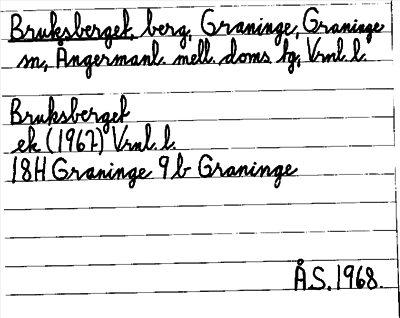 Bruksberget, berg, Graninge, Graninge
sn, Ångermanl. mell. doms. tg, Vrnl. l.
Bruksberget
ek (1967) Vrnl. l.
18H Graninge 9 b Graninge
Å.S. 1968.